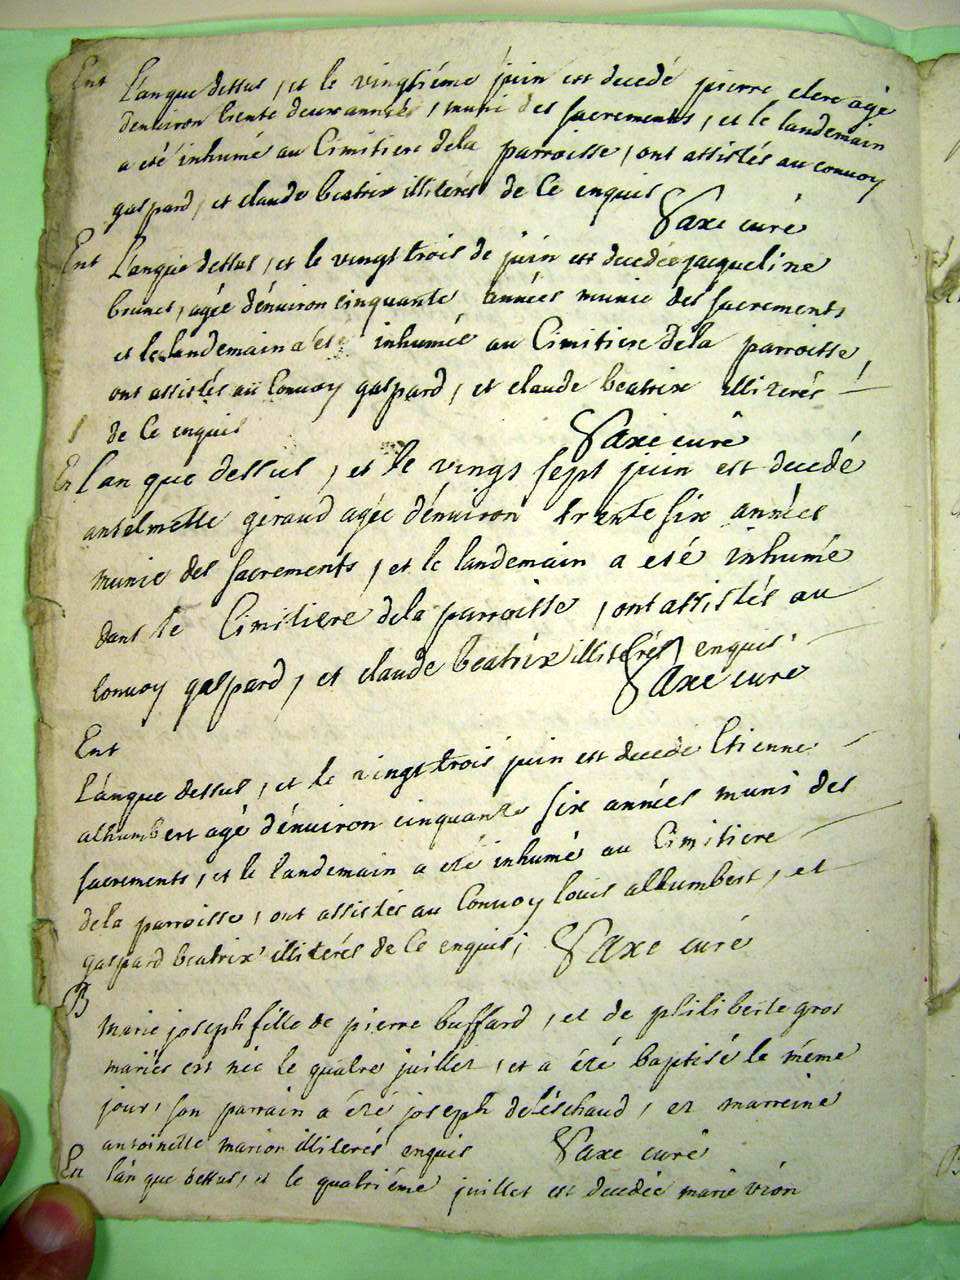 Ent L'an que dessus, et le vingtiéme juin est decedé pierre clerc agé
d'enuiron trente deux années, muni des sacrements, et le landemain
a eté inhumé au Cimitiere dela parroisse, ont assistés au conuoy
gaspard, et claude beatrix illiterés de Ce enquis
Saxe curé
Ent L'an que dessus, et le vingt trois de juin est decedée jacqueline
brunet, agée d'enuiron cinquante années munie des sacrements
et le landemain a été inhumée au Cimitiere dela parroisse,
ont assistés au Conuoy gaspard, et claude beatrix illiterés
de Ce enquis Saxe curé
En l'an que dessus, et le vingt sept juin est decedé
antelmette geraud agée d'enuiron trente six années
munie des sacrements, et le landemain a eté inhumée
dans le Cimitiere dela parroisse, ont assistés au
Conuoy gaspard, et claude beatrix illiterés enquis
Saxe curé
Ent
L'an que dessus, et le vingt trois juin est decedé Etienne
alhumbert agé d'énuiron cinquante six années muni des
sacrements, et le landemain a eté inhumé au Cimitiere
dela parroisse, ont assistés au Conuoy louis alhumbert, et
gaspard beatrix illiterés de Ce enquis; Saxe curé
B
Marie joseph fille de pierre buffard, et de philiberte gros
mariés est née le quatre juillet, et a été baptisé le méme
jour, son parrain a été joseph deléschaud, et marreine
antoinette marion illiterés enquis Saxe curé
En l'an que dessus, et le quatriéme juillet est decedée marie vion